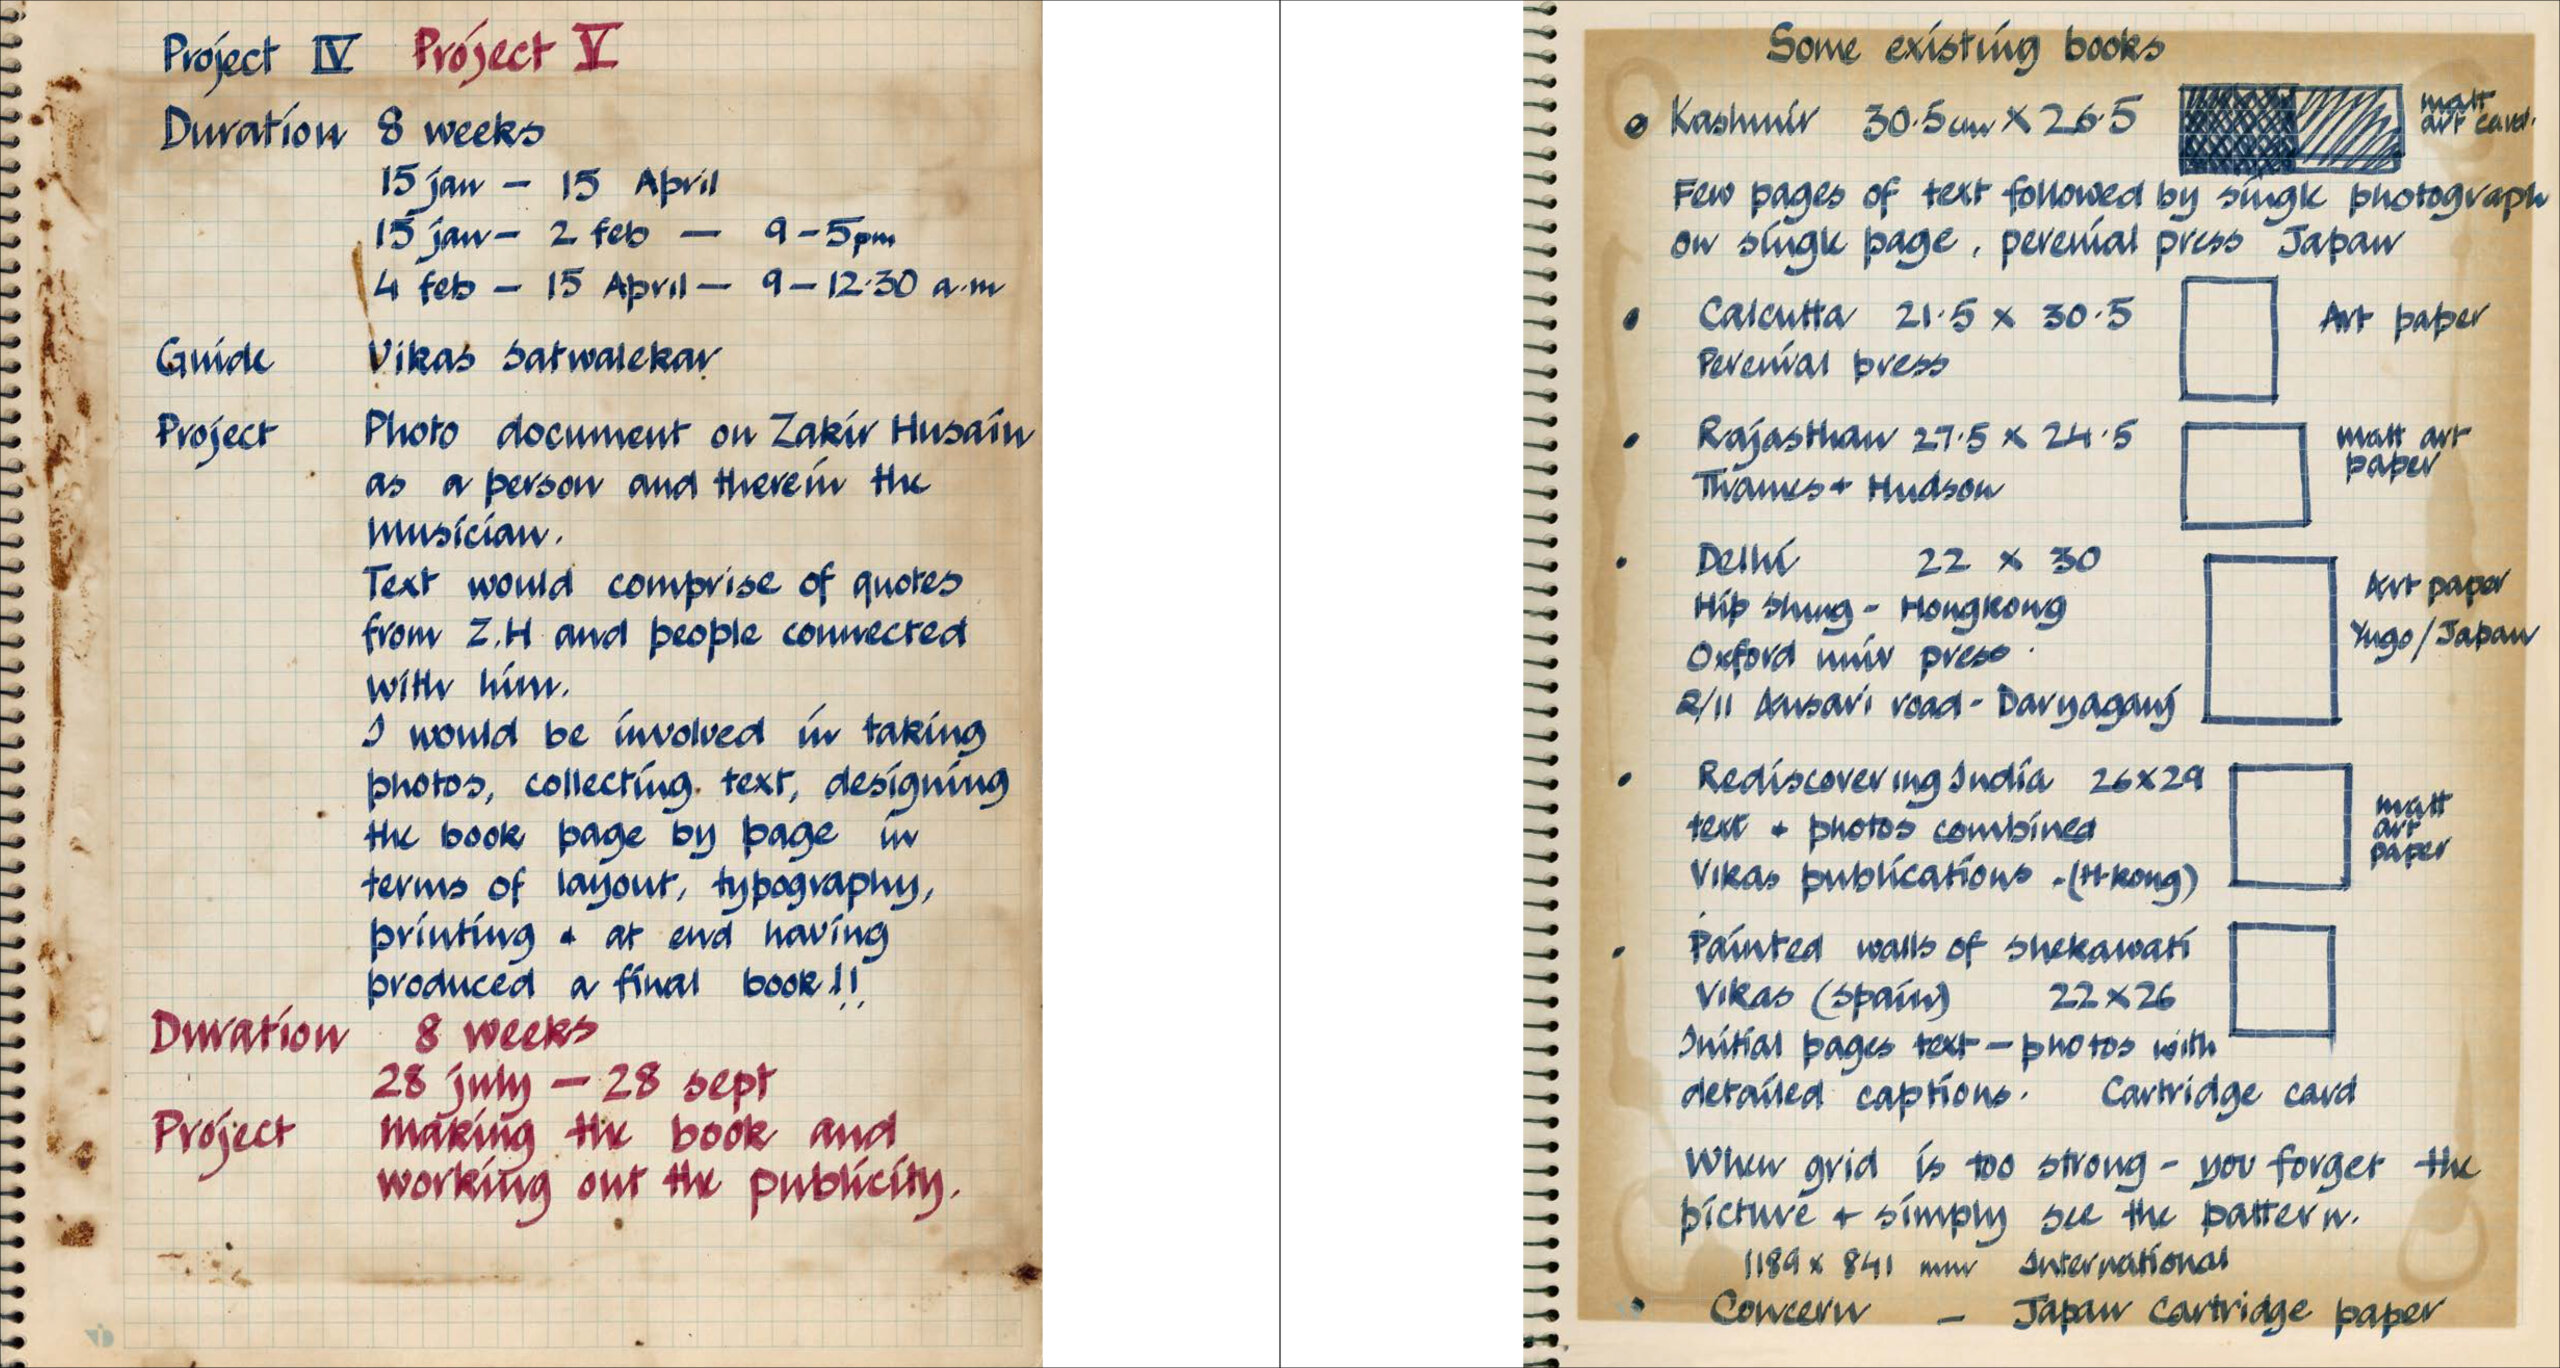 Project IV Project V
Duration 8 weeks
15 jan - 15 April
15 jan - 2 feb - 9-5pm
4 feb - 15 April - 9-12.30 a.m
Guide Vikas Satwalekar
Project Photo document on Zakir Husain
as a person and therein the
musician.
Text would comprise of quotes
from Z.H and people connected
with him.
I would be involved in taking
photos, collecting text, designing
the book page by page in
terms of layout, typography,
printing + at end having
produced a final book!!
Duration 8 weeks
28 july - 28 sept
Project making the book and
working out the publicity.
Some existing books
Kashmir 30.5cm X 26.5 matt
art
Few pages of text followed by single photograph
on single page, perenial press Japan
Calcutta 21.5 x 30.5 Art paper
Perenial press
Rajasthan 27.5 x 24.5 matt art
paper
Thames + Hudson
Delhi 22 x 30
Art paper
Hip Shing - Hongkong
Yugo/Japan
Oxford univ press.
2/11 Ansari road - Daryaganj
Rediscovering India 26x29
matt
art
paper
text + photos combined
Vikas publications -(H-kong)
Painted walls of shekawati
Vikas (spain) 22x26
Initial pages text - photos with
detailed captions. Cartridge card
When grid is too strong - you forget the
picture + simply see the pattern.
1189 x 841 mm International
Concern - Japan Cartridge paper